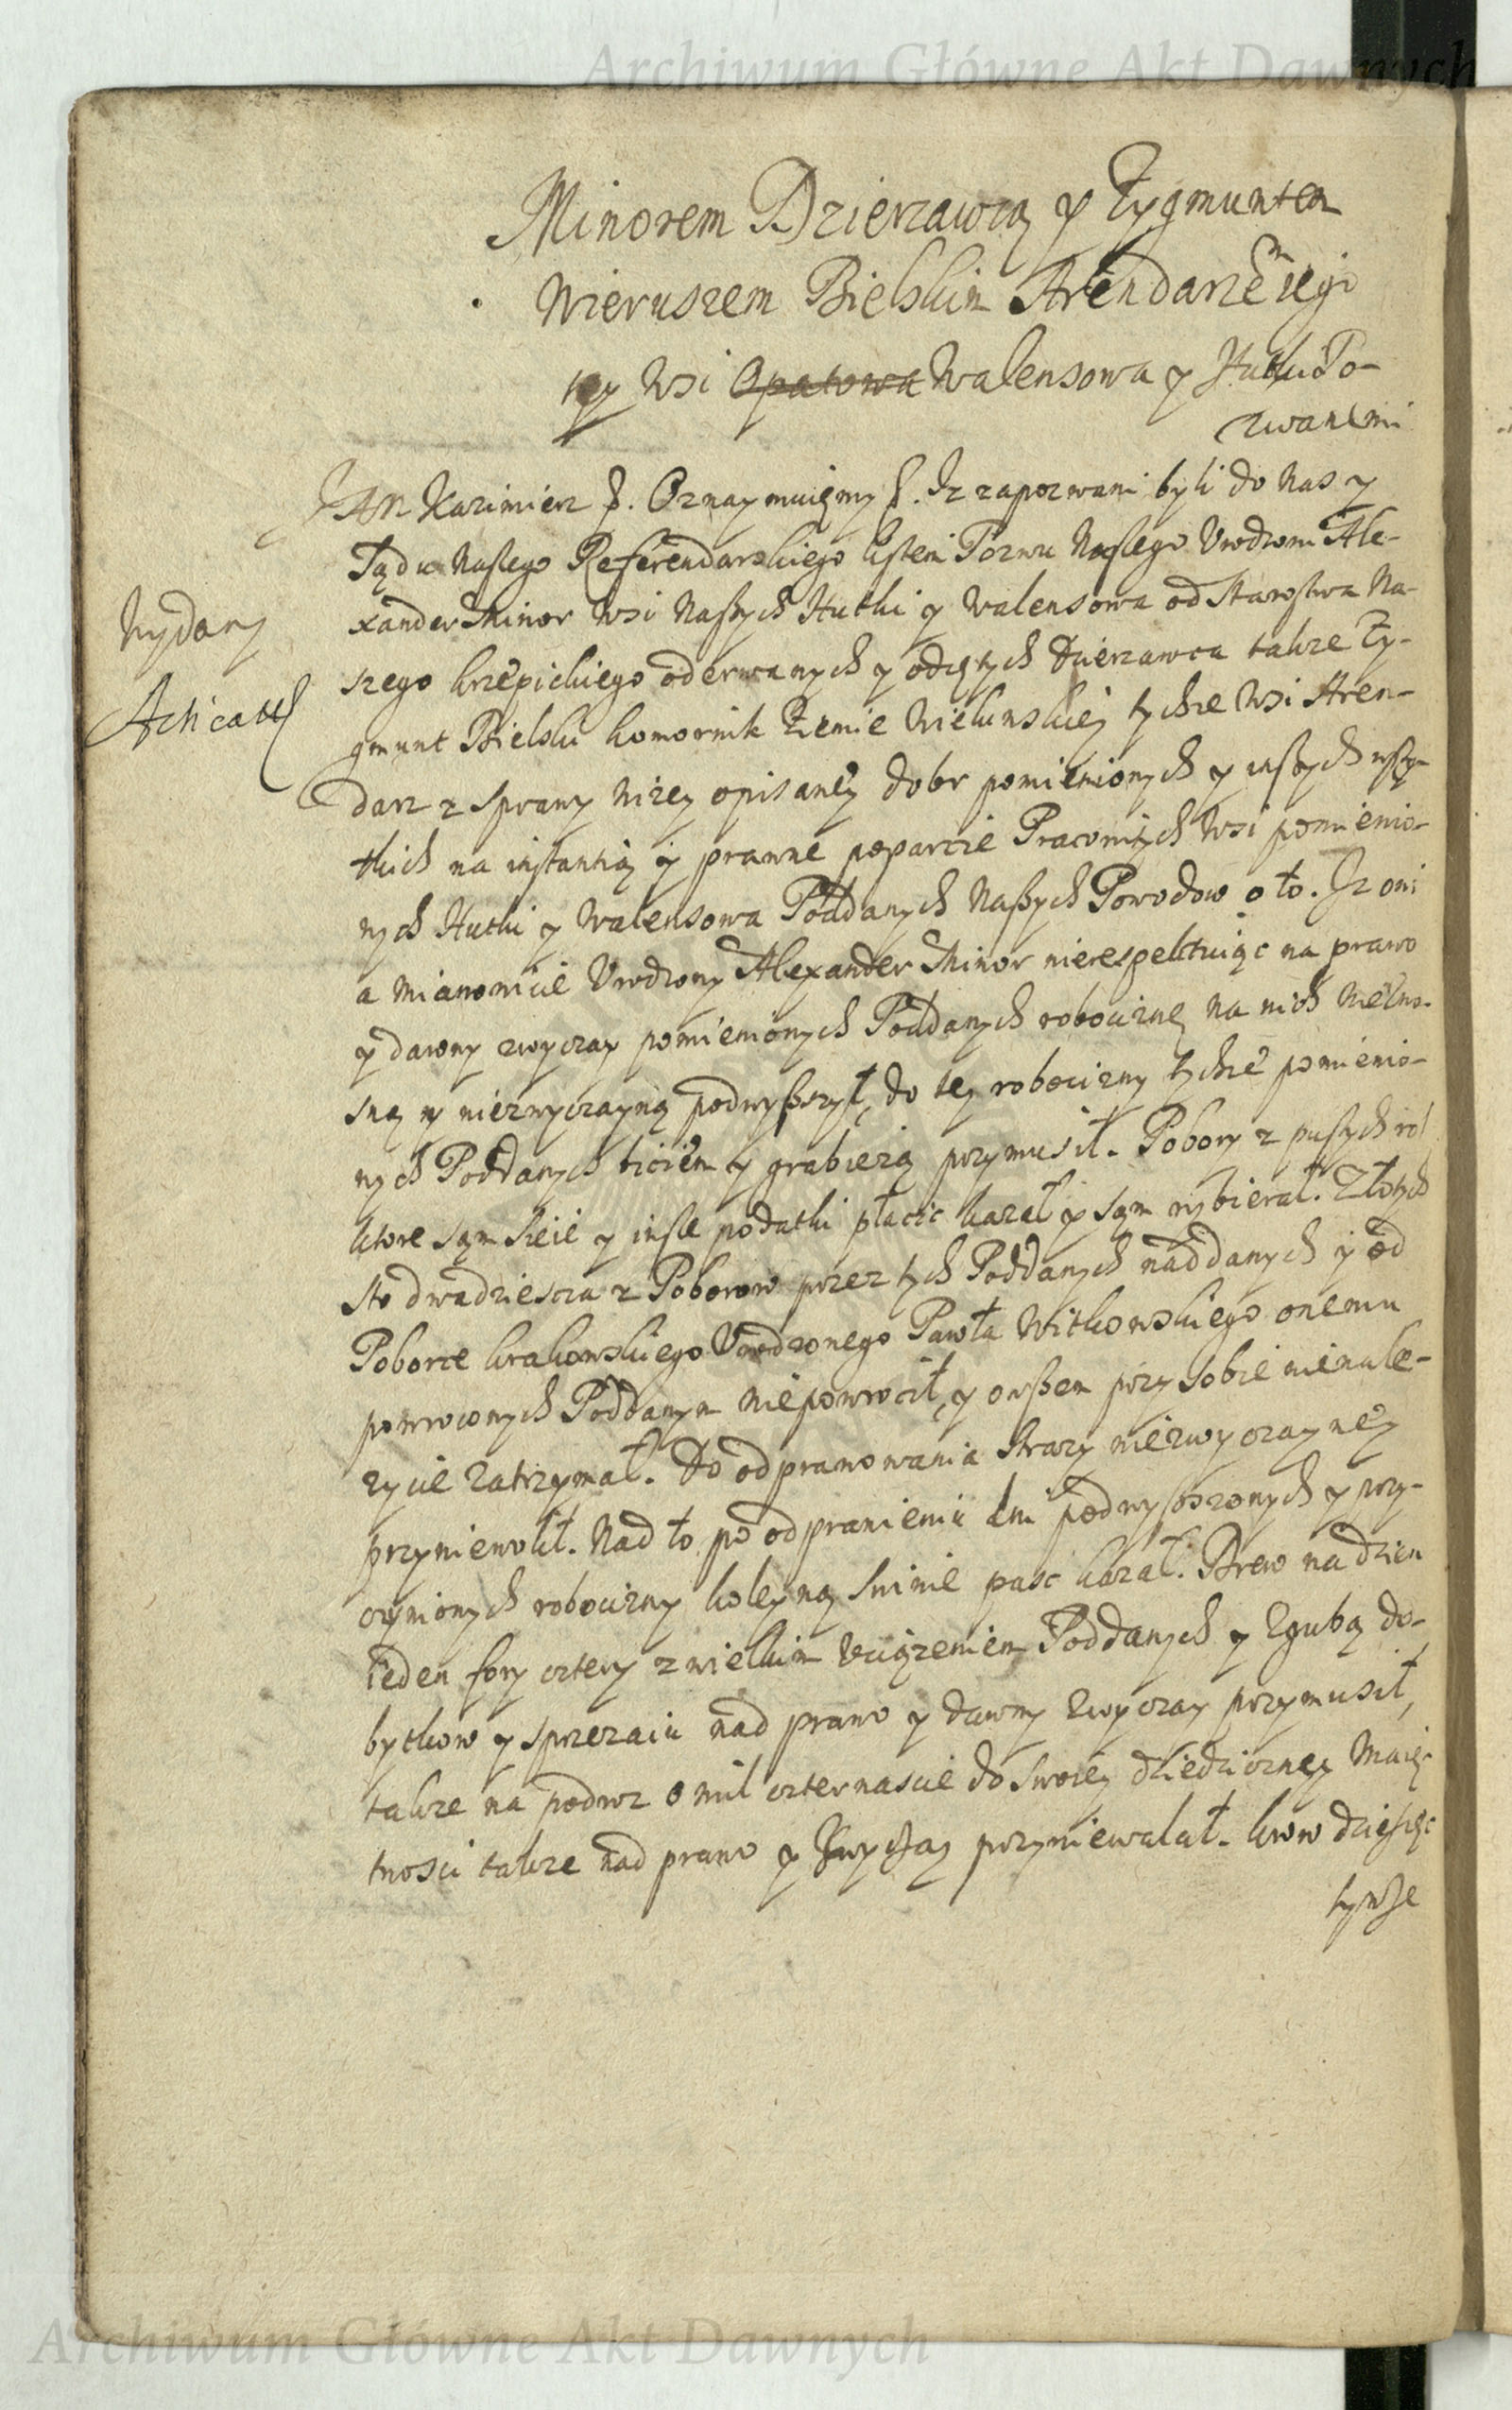 Archiwum Główne Akt Dawnych
Minorem Dzierzawcą y Zygmuntem
Wieruszem Bielskim Arendarzem iego
tey Wsi Opatowa Walensowa y Hutki Po-
zwanemi
JAn Kazimierz &. Oznaymuięmy &. Jz zapozwani byli do Nas y
Sądu Naszego Referendarskiego listem Pozwu Naszego Urodzeni Ale-
xander Minor Wsi Naszych Hutki y Walensowa od Starostwa Na-
szego krzepickiego oderwanych y odiętych Dzierzawca takze Zy-
gmunt Bielski komornik Ziemie Wielunskiey tychze Wsi Aren-
darz z sprawy nizey opisaney dobr pomienionych y inszych wszy-
tkich na instantią y prawne poparcie Pracowitych Wsi pomienio-
nych Hutki y Walensowa Poddanych Naszych Powodow o to. Jz oni
a mianowicie Urodzony Alexander Minor nierespektuiąc na prawo
y dawny zwyczay pomienionych Poddanych robociznę na nich niezno-
sną y niezwyczayną podwyszszył, do tey robocizny tychze pomienio-
nych Poddanych biciem y grabiezą przymusił. Pobory z pustych rol
ktore sąm sieie y insze podatki płacic kazał y sąm wybierał. Złotych
sto dwadziescia z Poborow przez tych Poddanych naddanych y od
Poborce krakowskiego Urodzonego Pawła Witkowskiego onemu
powroconych Poddanym niepowrocił, y owszem przy sobie nienale-
zycie zatrzymał. Do odprawowania strazy niezwyczayney
przyniewolił. Nad to po odprawieniu dni podwyszszonych y przy-
czynionych robocizny koleyną swinie pasc kazał. Drew na dzien
ieden fory cztery z wielkim uciązeniem Poddanych y zgubą do-
bytkow y sprzezaiu nad prawo y dawny zwyczay przymusił,
takze na podwz o mil czternascie do swoiey dziedziczney Maię-
tnosci takze nad prawo y zwyczay przyniewalał. krow dziesięc
tymze
Wydany
Acticat
Archiwum Główne Akt Dawnych